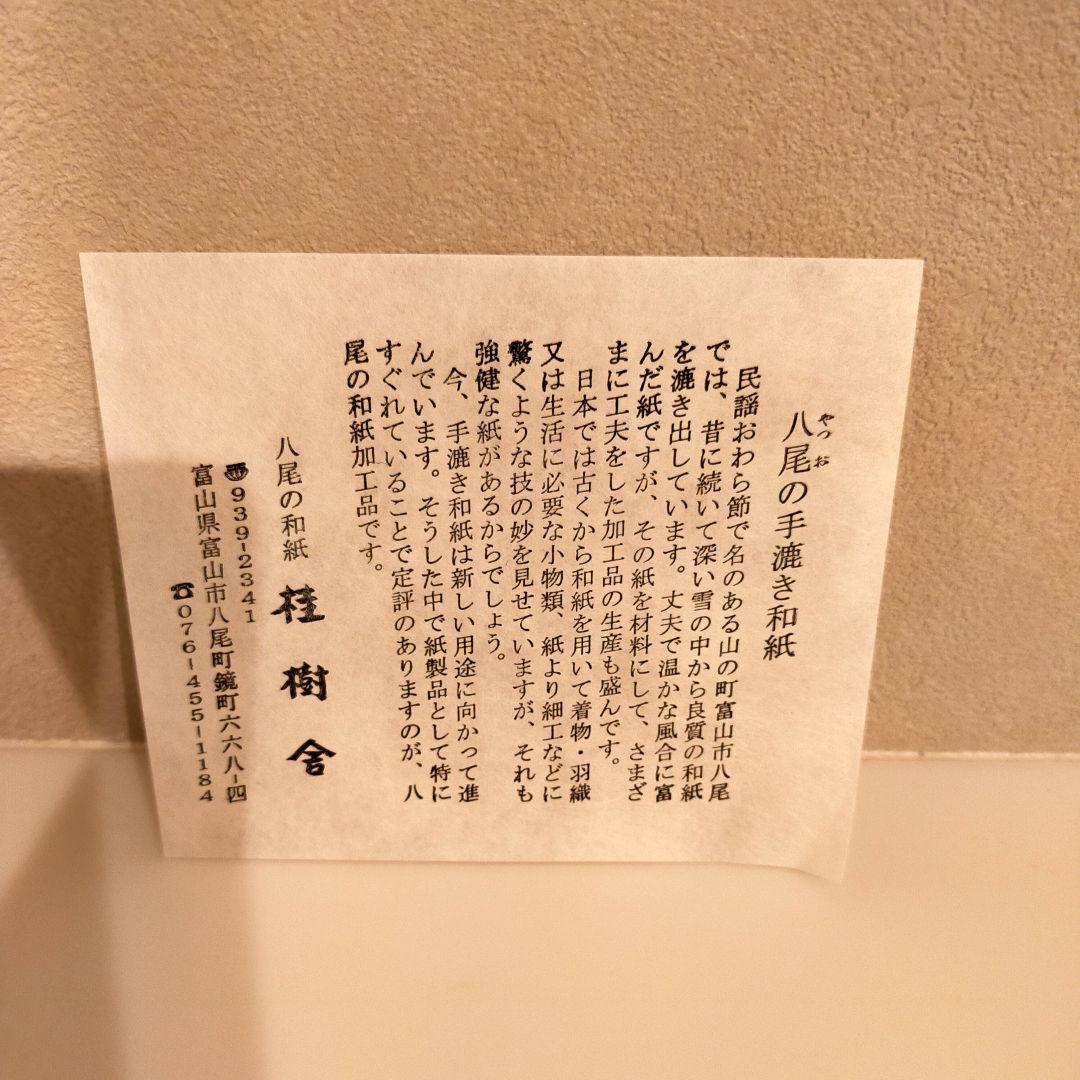 八尾の手漉き和紙
やつお
民謡おわら節で名のある山の町富山市八尾
では、昔に続いて深い雪の中から良質の和紙
を漉き出しています。丈夫で温かな風合に富
んだ紙ですが、その紙を材料にして、さまざ
まに工夫をした加工品の生産も盛んです。
日本では古くから和紙を用いて着物・羽織
又は生活に必要な小物類、紙より細工などに
驚くような技の妙を見せていますが、それも
強健な紙があるからでしょう。
今、手漉き和紙は新しい用途に向かって進
んでいます。そうした中で紙製品として特に
すぐれていることで定評のありますのが、八
尾の和紙加工品です。
八尾の和紙 桂樹舎
〠939-2341
富山県富山市八尾町鏡町六六八-四
☎076-455-1184